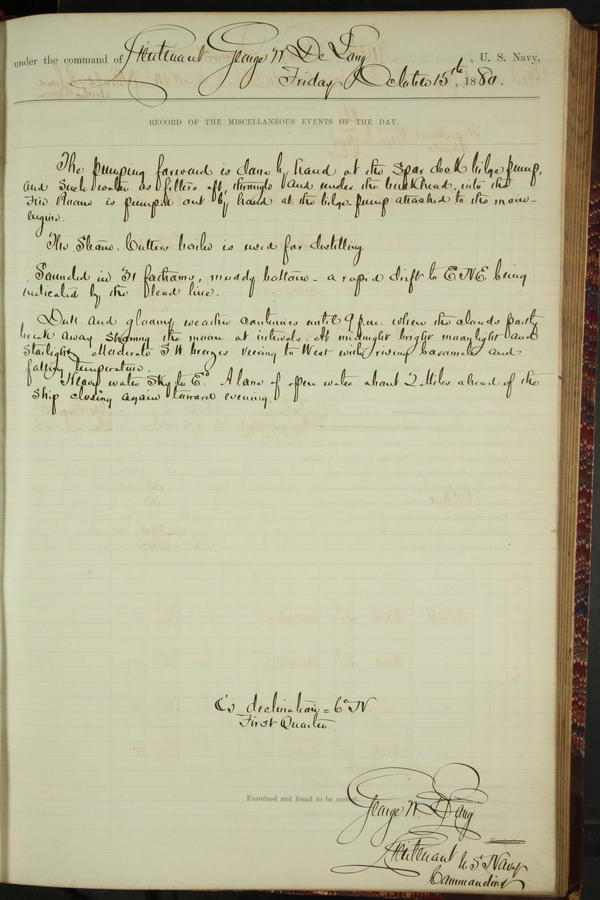 under the command of Lieutenant George W. De Long, U. S. Navy,
Friday October 15th, 1880.
RECORD OF THE MISCELLANEOUS EVENTS OF THE DAY.
The pumping forward is done by hand at the spar deck bilge pump,
and such water as filters aft, through and under the bulkhead, into the
Fire Room is pumped out by hand at the bilge pump attached to the main
engine.
The Steam Cutters boiler is used for distilling
Sounded in 31 fathoms, muddy bottom - a rapid drift to ENE being
indicated by the lead line.
Dull and gloomy weather continues until 9 p.m. when the clouds partly
break away showing the moon at intervals. At midnight bright moonlight and
starlight. Moderate S.W. breezes veering to West with rising barometer and
falling temperature.
Heavy water sky to E. A lane of open water about 2 Miles ahead of the
ship closing again toward evening.
declination = 6° N
First Quarter
Examined and found to be correct.
George W. De Long
Navigator.
Lieutenant U.S. Navy
Commanding